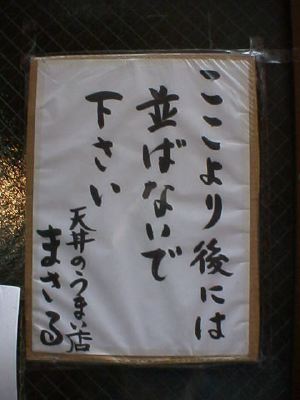 ここより後には
並ばないで
下さい
天丼のうまい店
まさる